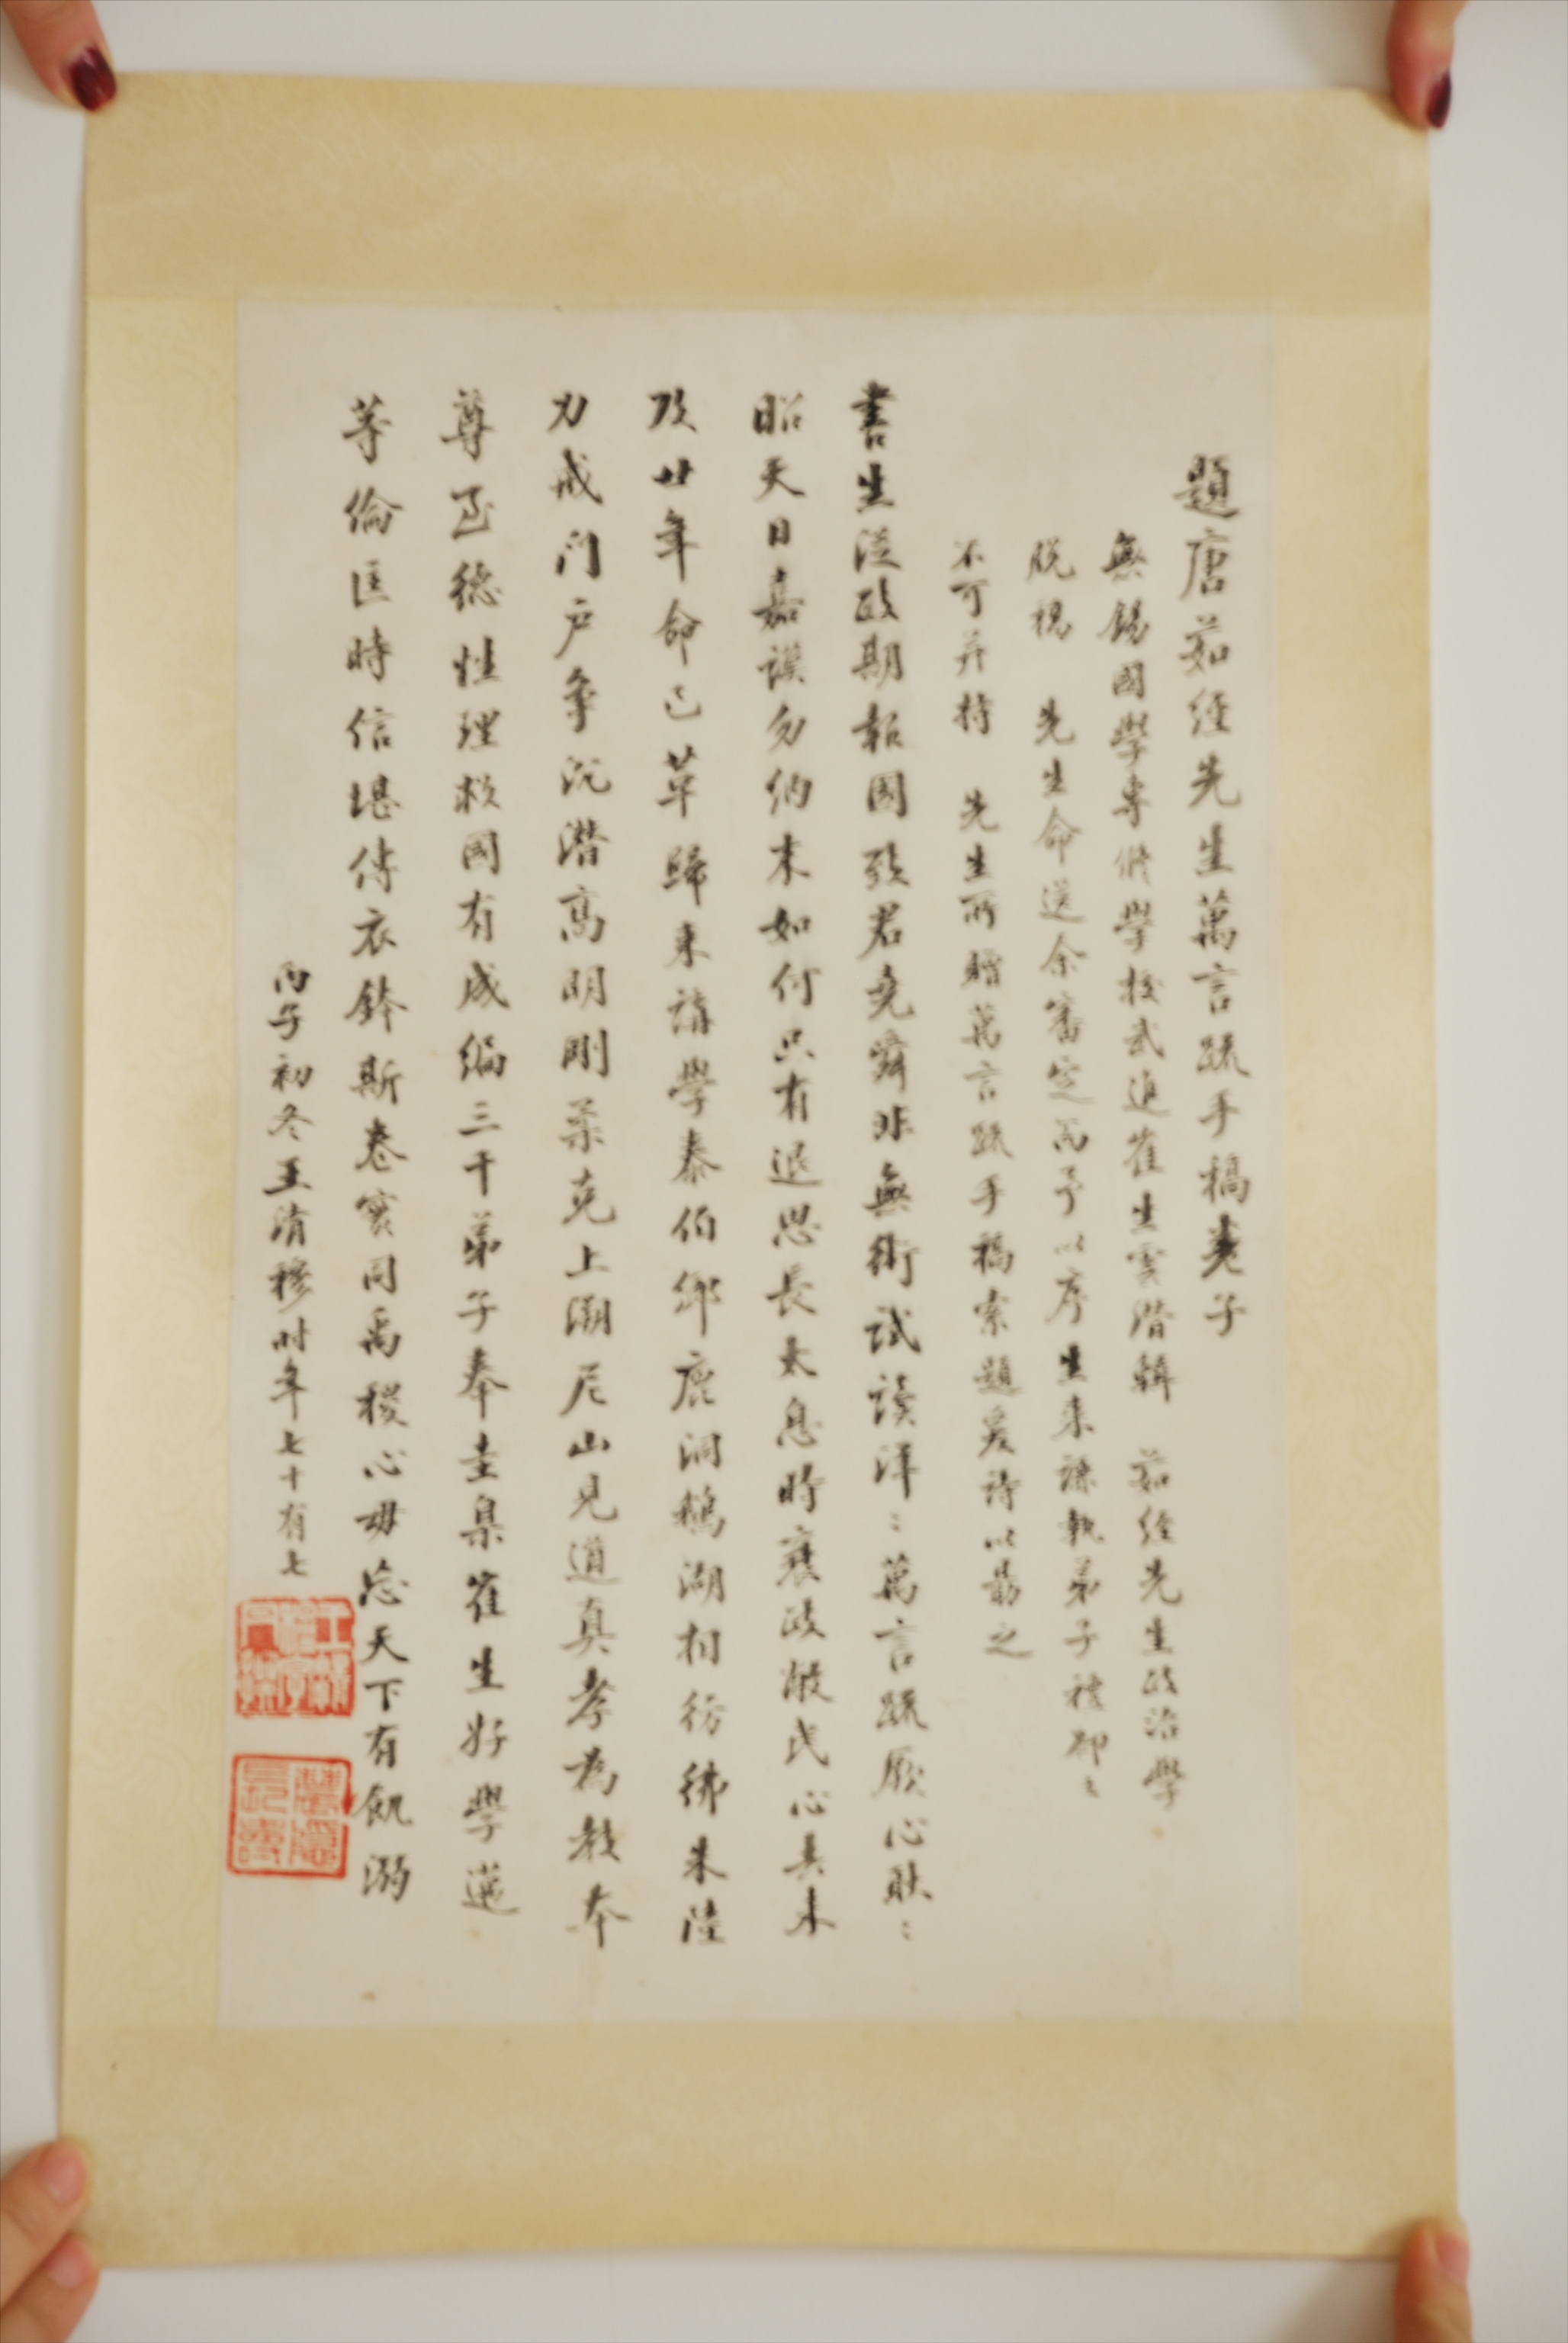 題唐茹經先生萬言疏手稿卷子
無錫國學專修學校武進崔生雲潛輯　茹經先生政治學
脫稿　先生命送余審定而予以序生来謁執弟子禮卻之
不可并持　先生所贈萬言疏手稿索題爰詩以勗之
書生從政期報國致君堯舜非無術試讀洋:萬言疏厥心耿:
昭天日嘉謨勿納末如何只有退思長太息時衰政敝民心異未
及廿年命已革歸來講學泰伯鄉鹿洞鵝湖相彷彿朱陸
力戒门户爭沉潛高明剛柔克上溯尼山見道真孝為教本
尊至德性理救國有成編三千弟子奉圭臬崔生好學邁
等倫匡時信堪傳衣鉢斯卷實同禹稷心毋忘天下有飢溺
丙子初冬王清穆时年七十有七
農隱